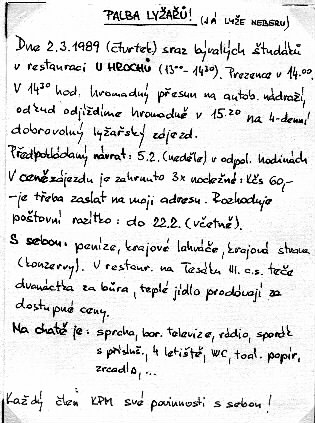 PALBA LYŽAŘŮ! (JÁ LYŽE NEBERU)
Dne 2.3.1989 (čtvrtek) sraz bývalých študáků
v restauraci U HROCHŮ (13⁰⁰-14³⁰). Prezence v 14.00.
V 14³⁰ hod. hromadný přesun na autob. nádraží,
odkud odjíždíme hromadně v 15.20 na 4-denní
dobrovolný lyžařský zájezd.
Předpokládaný návrat: 5.2. (neděle) v odpol. hodinách
V ceně zájezdu je zahrnuto 3x nocležné: Kčs 60,-
-je třeba zaslat na moji adresu. Rozhoduje
poštovní razítko: do 22.2. (včetně).
S sebou: peníze, krajové lahváče, krajová strava
(konzervy). V restaur. na Tesáku III. c.s. teče
dvanáctka za bůra, teplé jídlo prodávají za
dostupné ceny.
Na chatě je: sprcha, bar. televize, rádio, sporák
s přísluš., 4 letiště, WC, toal. papír,
zrcadlo,...
Každý člen KPM své povinnosti s sebou!